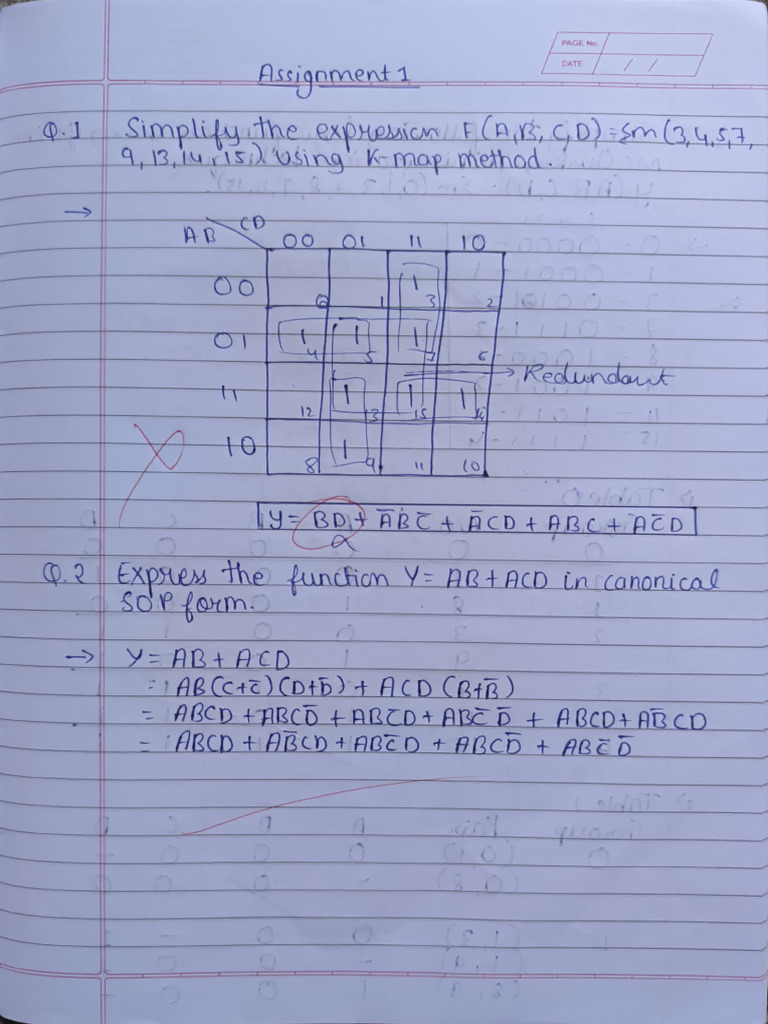 PAGE No.
DATE / /
Assignment 1
Q.1 Simplify the expression F(A,B,C,D) = Σm(3,4,5,7,
9,13,14,15) using K-map method.
→
AB \ CD 00 01 11 10
00 0 1 1 3 2
01 1 4 1 5 1 7 6
→ Redundant
11 12 1 13 1 15 1 14
10 8 1 9 11 10
Y = BD + A̅BC̅ + A̅CD + ABC + AC̅D
Q.2 Express the function Y = AB + ACD in canonical
SOP form.
→ Y = AB + ACD
= AB(C+C̅)(D+D̅) + ACD(B+B̅)
= ABCD + ABCD̅ + ABC̅D + ABC̅D̅ + ABCD + AB̅CD
= ABCD + AB̅CD + ABC̅D + ABCD̅ + ABC̅D̅